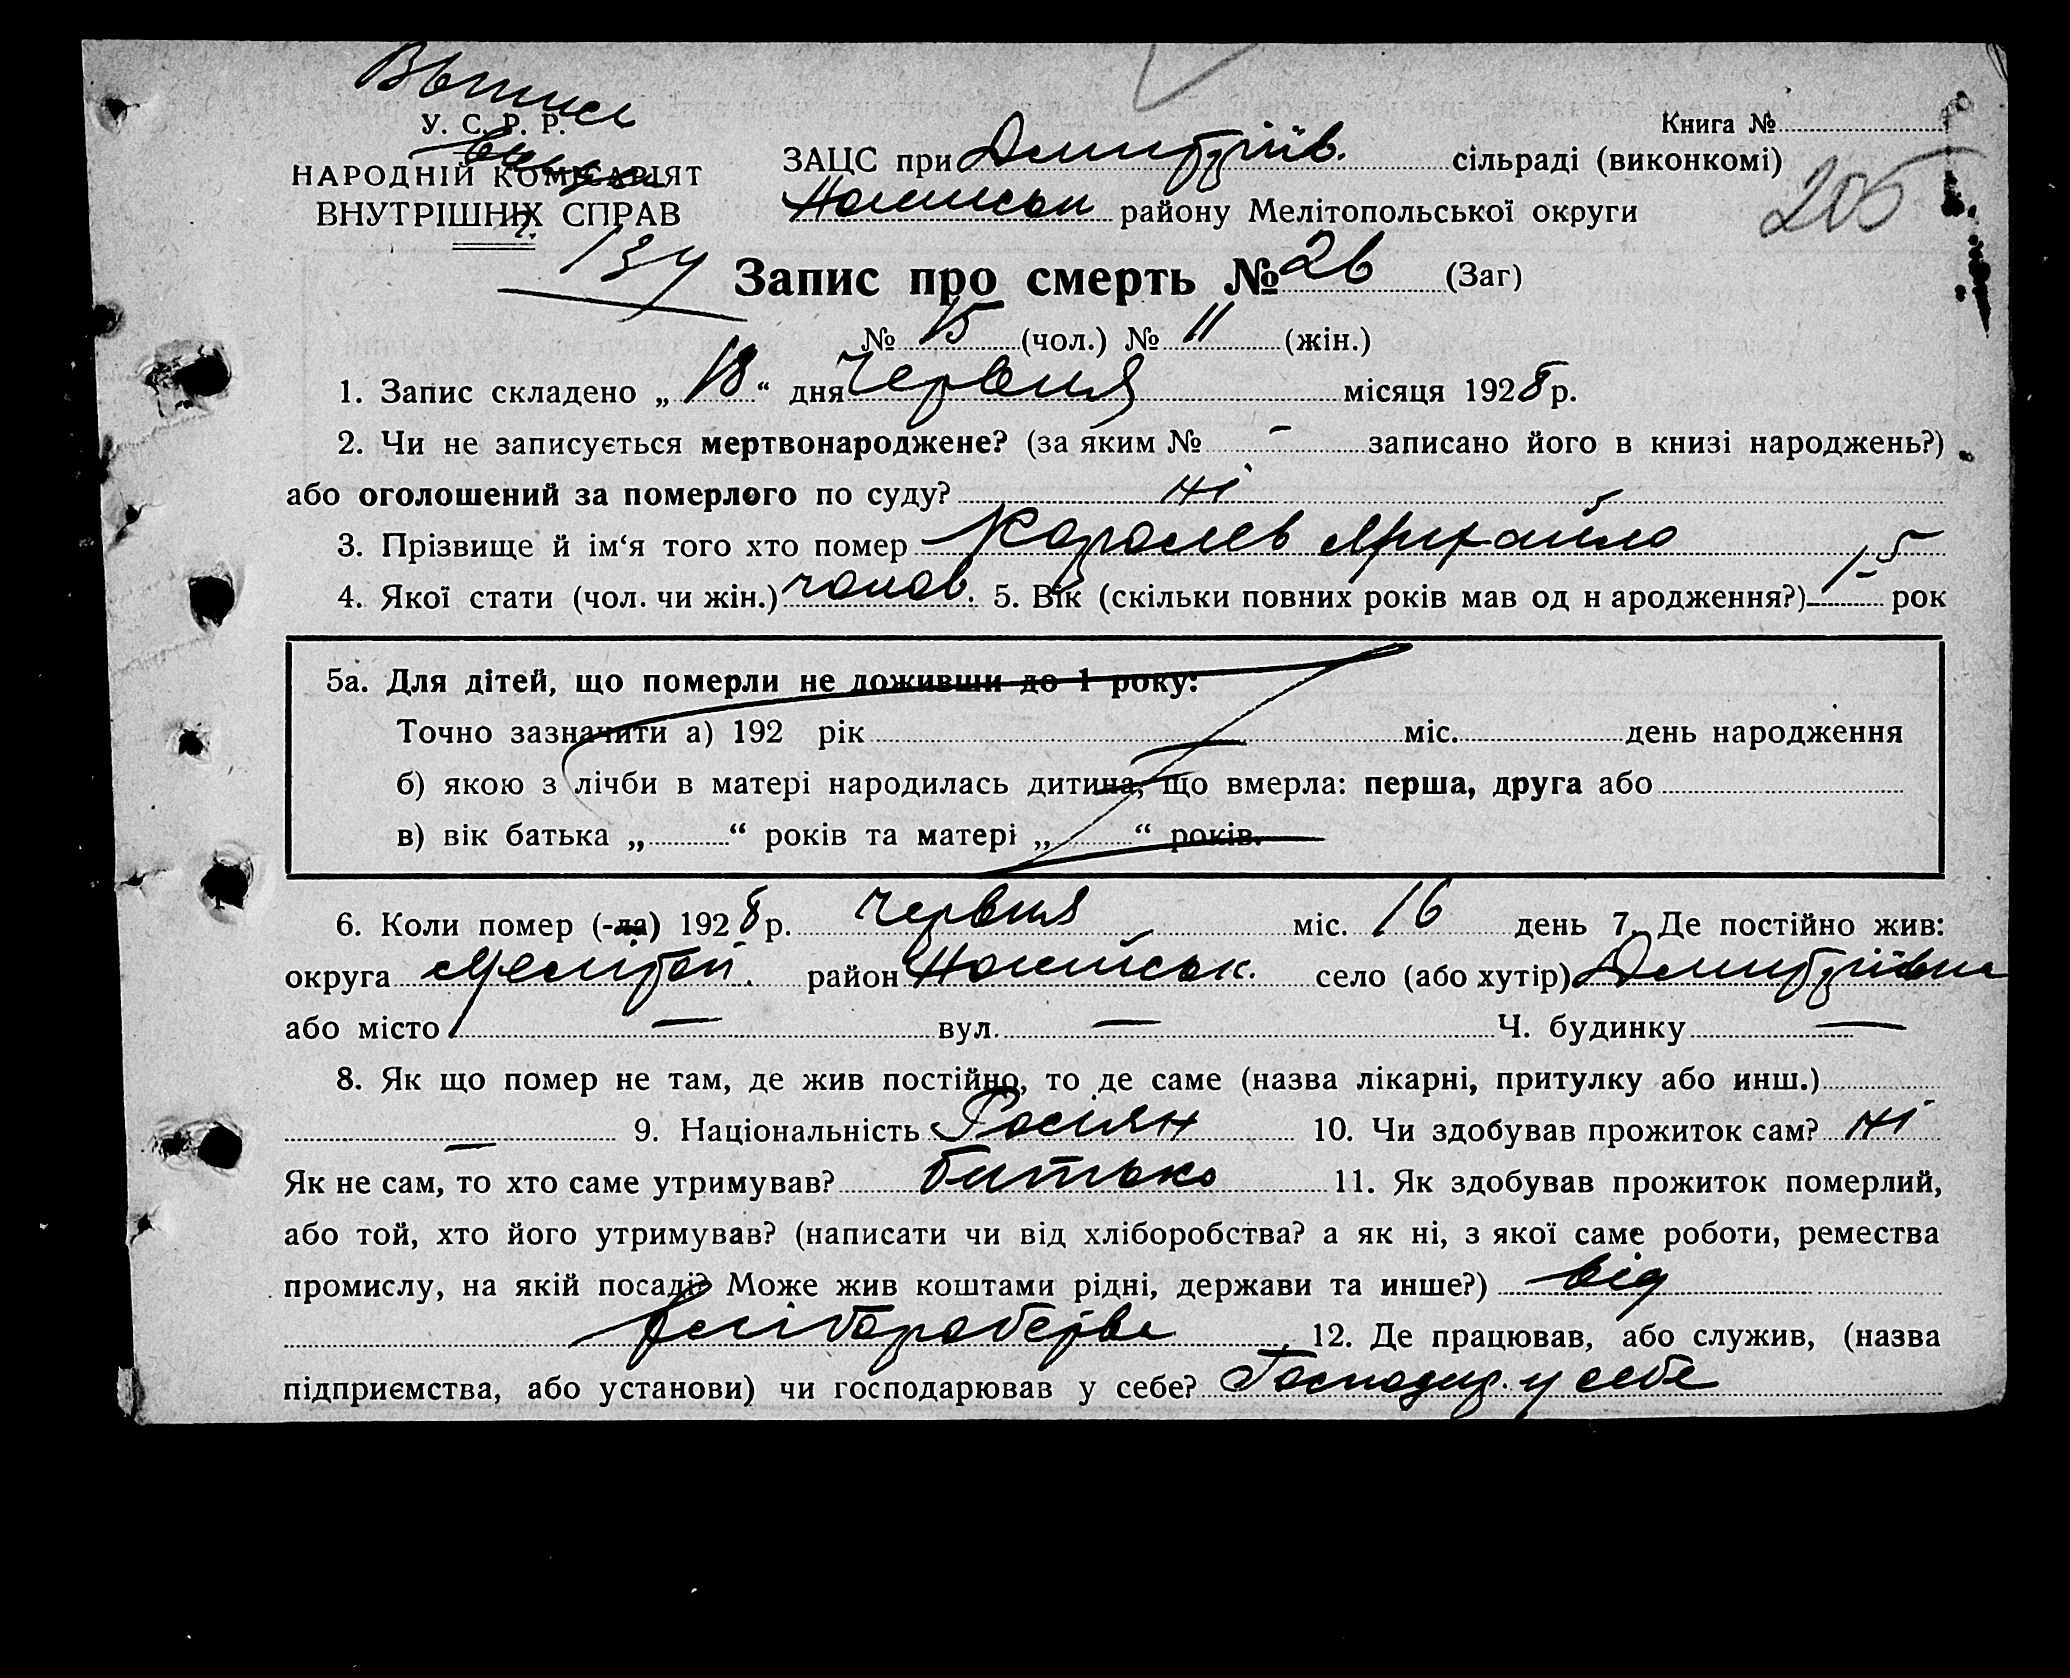 Выпись
У. С. Р. Р.
НАРОДНІЙ КОМІСАРІЯТ
ВНУТРІШНІХ СПРАВ
Книга №
ЗАЦС при Дмитріїв. сільраді (виконкомі)
району Мелітопольської округи
205
134
Запис про смерть № 26 (Заг)
№ 15 (чол.) № 11 (жін.)
1. Запис складено „ 18 “ дня Червня місяця 1928 р.
2. Чи не записується мертвонароджене? (за яким № – записано його в книзі народжень?)
або оголошений за померлого по суду? ні
3. Прізвище й ім‘я того хто помер Королев Михайло
4. Якої стати (чол. чи жін.) чолов. 5. Вік (скільки повних років мав од н ародження?) 15 рок
5а. Для дітей, що померли не доживши до 1 року:
Точно зазначити а) 192 рік міс. день народження
б) якою з лічби в матері народилась дитина, що вмерла: перша, друга або
в) вік батька „ “ років та матері „ “ років.
6. Коли помер (-ла) 1928 р. Червня міс. 16 день 7. Де постійно жив:
округа Мелітоп. район село (або хутір) Дмитріівка
або місто — вул. — Ч. будинку —
8. Як що помер не там, де жив постійно, то де саме (назва лікарні, притулку або инш.)
— 9. Національність Росіян 10. Чи здобував прожиток сам? ні
Як не сам, то хто саме утримував? батько 11. Як здобував прожиток померлий,
або той, хто його утримував? (написати чи від хліборобства? а як ні, з якої саме роботи, ремества
промислу, на якій посаді? Може жив коштами рідні, держави та инше?) від
хліборобства 12. Де працював, або служив, (назва
підприємства, або установи) чи господарював у себе? Господар. у себе